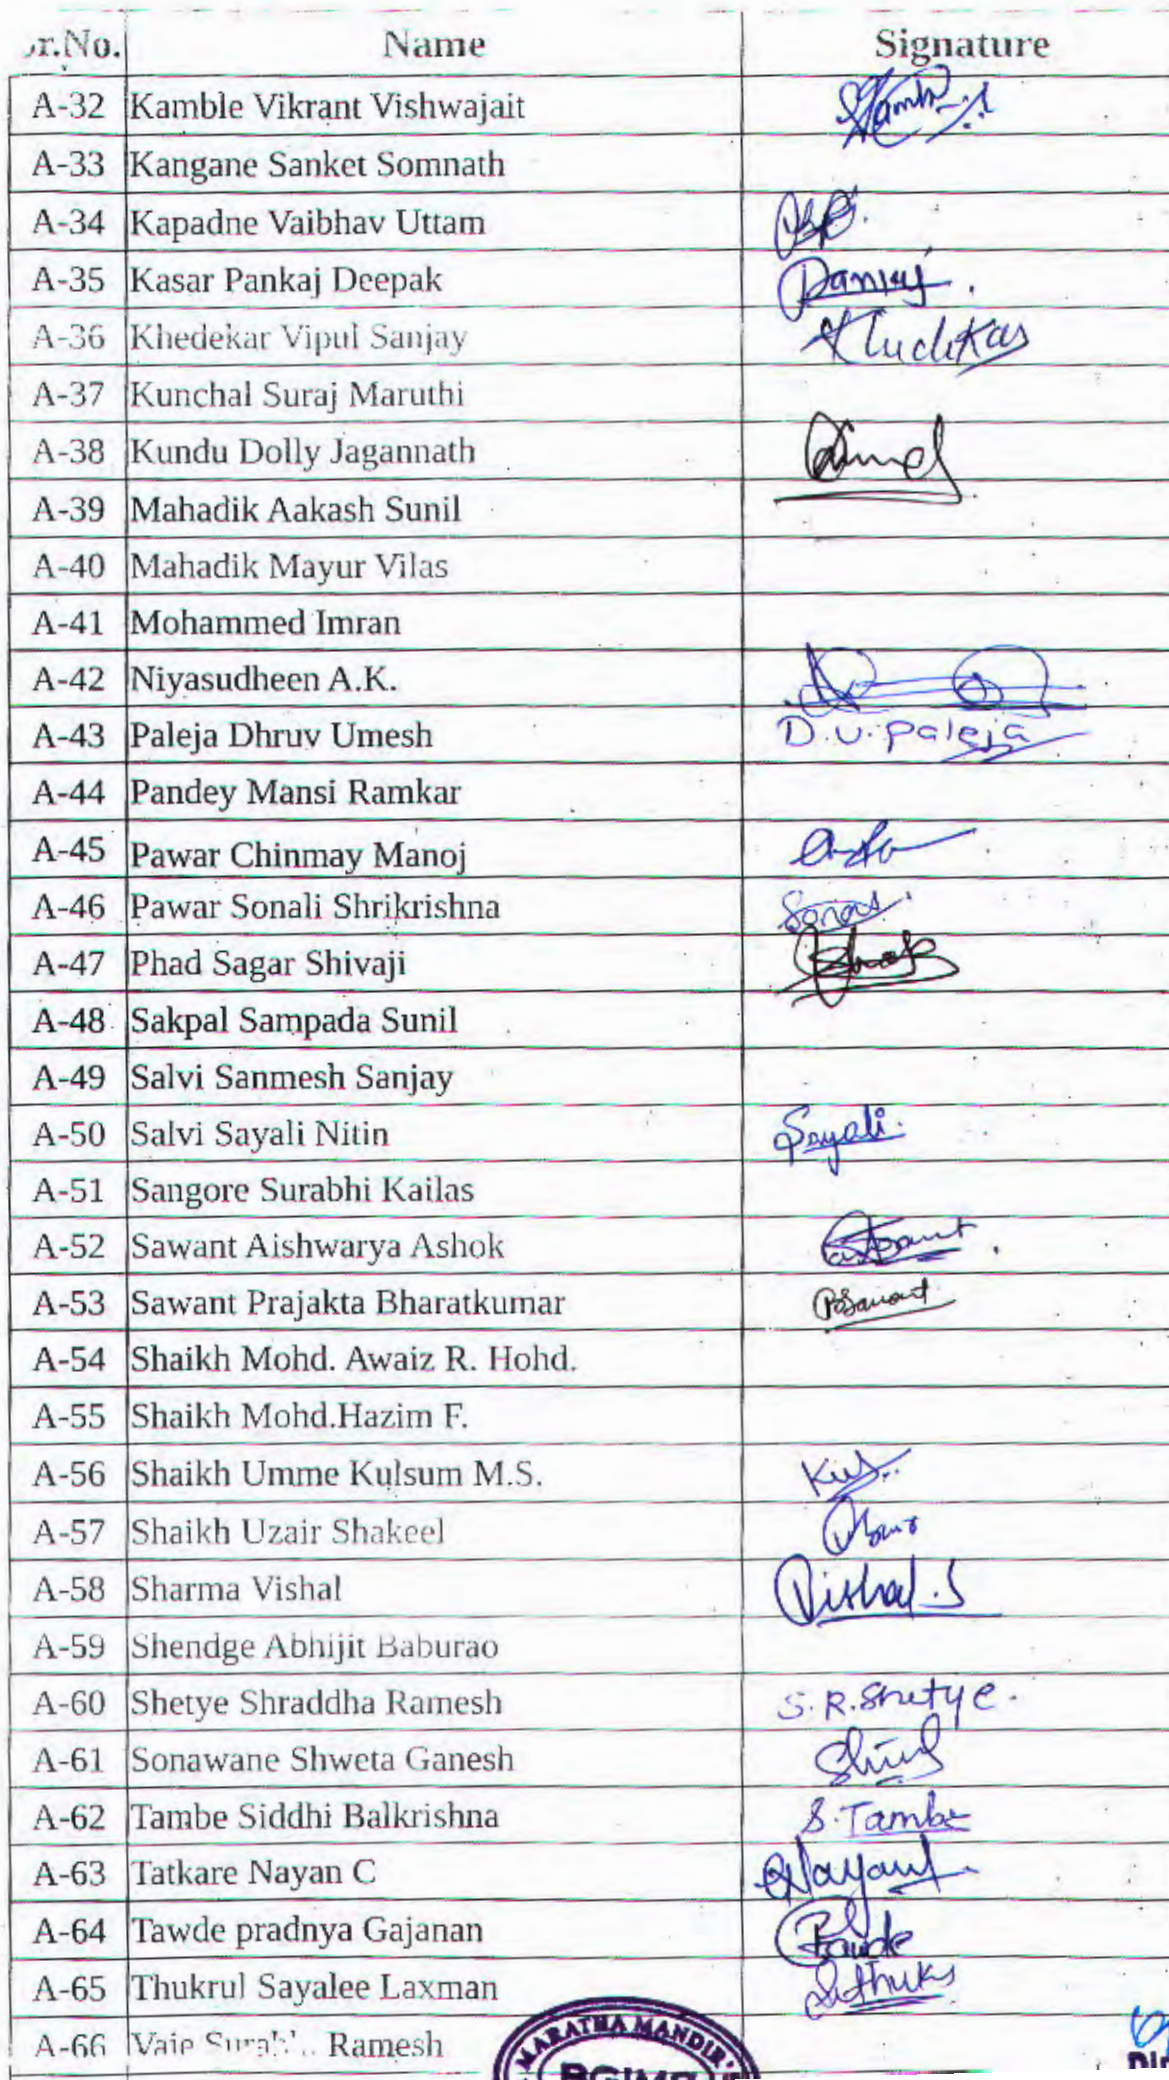 r.No. Name Signature
A-32 Kamble Vikrant Vishwajait
A-33 Kangane Sanket Somnath
A-34 Kapadne Vaibhav Uttam
A-35 Kasar Pankaj Deepak Pankaj
A-36 Khedekar Vipul Sanjay
A-37 Kunchal Suraj Maruthi
A-38 Kundu Dolly Jagannath
A-39 Mahadik Aakash Sunil
A-40 Mahadik Mayur Vilas
A-41 Mohammed Imran
A-42 Niyasudheen A.K.
A-43 Paleja Dhruv Umesh D.U.Paleja
A-44 Pandey Mansi Ramkar
A-45 Pawar Chinmay Manoj
A-46 Pawar Sonali Shrikrishna
A-47 Phad Sagar Shivaji
A-48 Sakpal Sampada Sunil
A-49 Salvi Sanmesh Sanjay
A-50 Salvi Sayali Nitin Sayali
A-51 Sangore Surabhi Kailas
A-52 Sawant Aishwarya Ashok
A-53 Sawant Prajakta Bharatkumar PBSawant
A-54 Shaikh Mohd. Awaiz R. Hohd.
A-55 Shaikh Mohd.Hazim F.
A-56 Shaikh Umme Kulsum M.S.
A-57 Shaikh Uzair Shakeel
A-58 Sharma Vishal Vishal.S
A-59 Shendge Abhijit Baburao
A-60 Shetye Shraddha Ramesh S.R.Shetye.
A-61 Sonawane Shweta Ganesh
A-62 Tambe Siddhi Balkrishna S.Tambe
A-63 Tatkare Nayan C Nayan
A-64 Tawde pradnya Gajanan
A-65 Thukrul Sayalee Laxman
A-66 Ramesh
MARATHA MANDIR'S